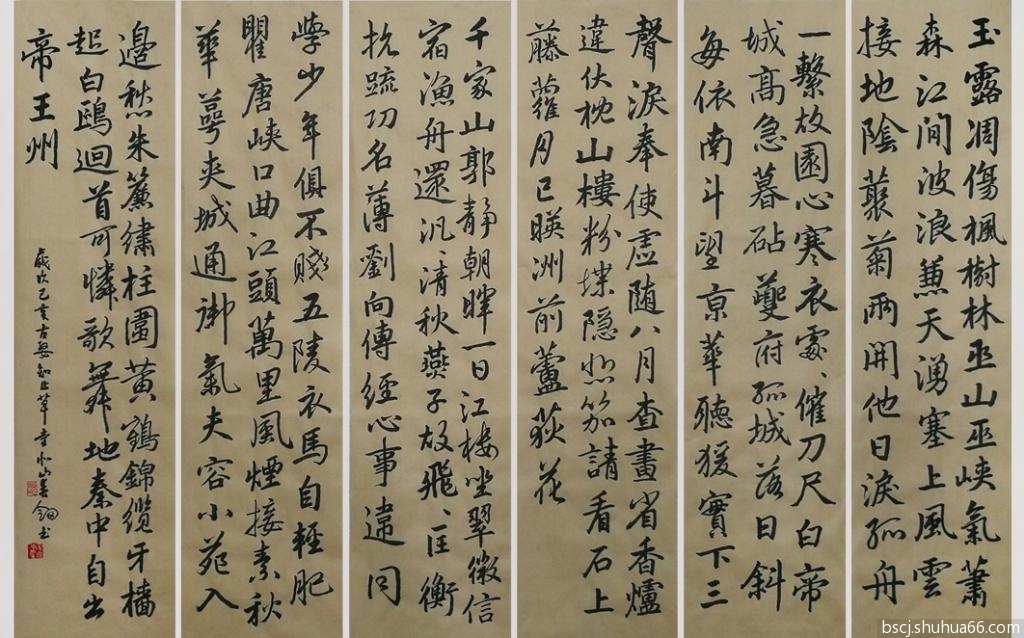 玉露凋傷楓樹林巫山巫峽氣蕭
森江間波浪兼天湧塞上風雲
接地陰叢菊兩開他日淚孤舟
一繫故園心寒衣處〻催刀尺白帝
城高急暮砧夔府孤城落日斜
每依南斗望京華聽猿實下三
聲淚奉使虛隨八月查畫省香爐
違伏枕山樓粉堞隱悲笳請看石上
藤蘿月已暎洲前蘆荻花
千家山郭靜朝暉一日江樓坐翠微信
宿漁舟還汎〻清秋燕子故飛〻匡衡
抗疏功名薄劉向傳經心事違同
學少年俱不賤五陵衣馬自輕肥
瞿唐峽口曲江頭萬里風煙接素秋
華萼夾城通御氣夫容小苑入
邊愁朱簾繡柱圍黃鶴錦纜牙檣
起白鷗迴首可憐歌舞地秦中自古
帝王州
歲次己亥古知止草堂書
bscj.shuhua66.com